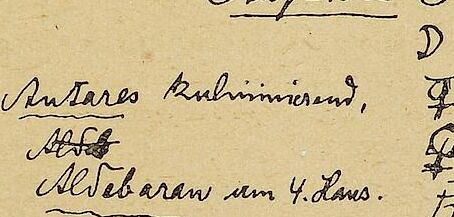 Antares kulminierend,
Aldebaran im 4. Haus.